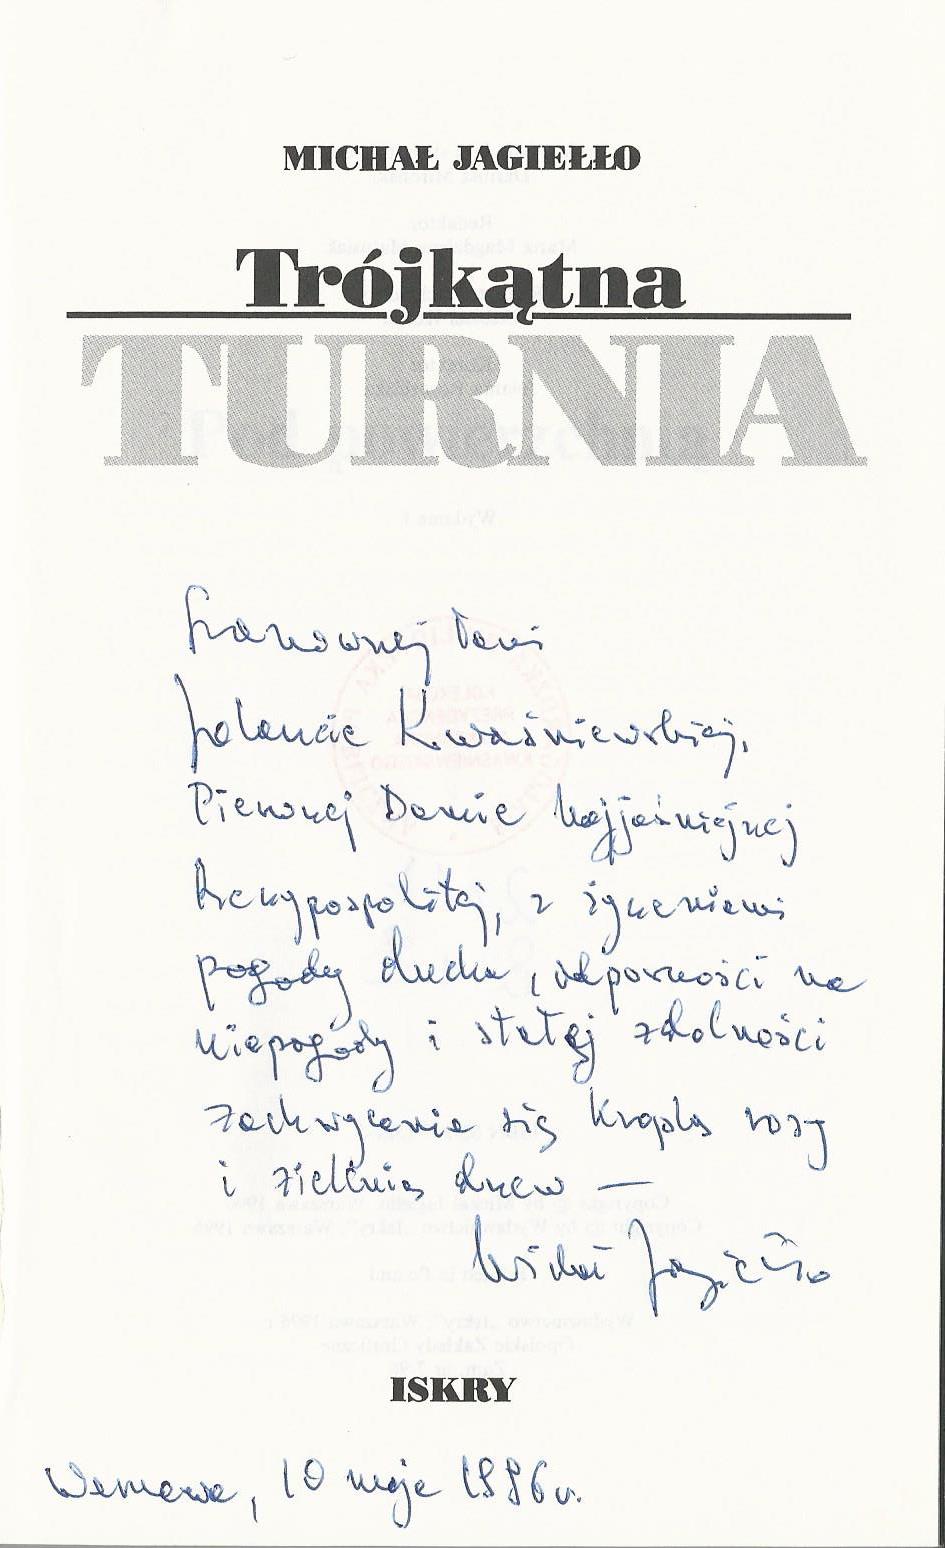 MICHAŁ JAGIEŁŁO
Trójkątna
TURNIA
Szanownej Pani
Jolancie Kwaśniewskiej,
Pierwszej Damie Najjaśniejszej
Rzeczypospolitej, z życzeniami
pogody ducha, odporności na
niepogody i stałej zdolności
zachwycania się kroplą rosy
i zielenią drzew —
Michał Jagiełło
ISKRY
Warszawa, 10 maja 1996 r.